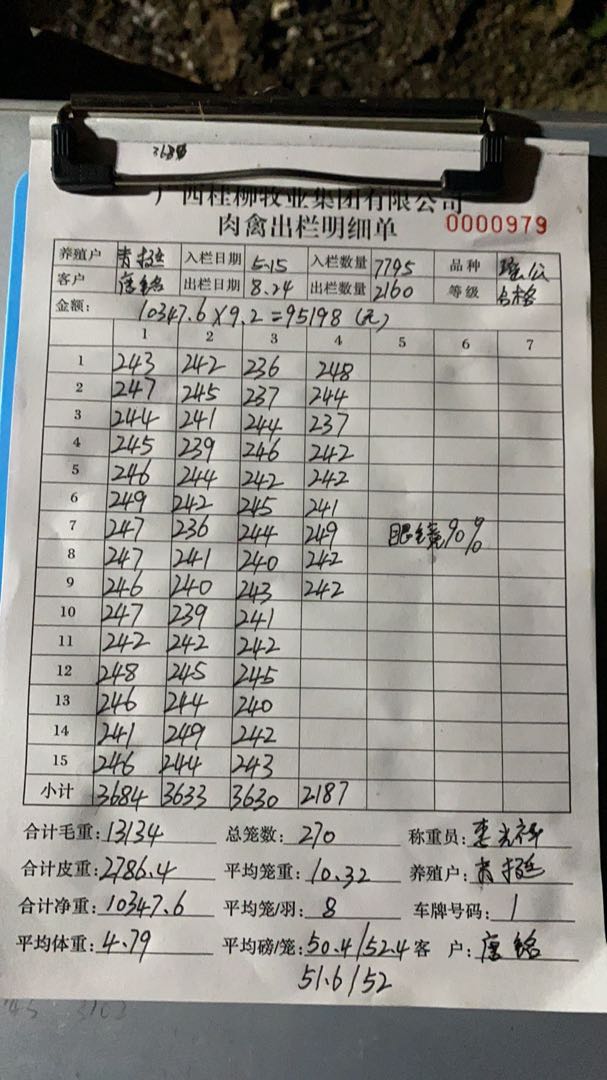 3684
广西桂柳牧业集团有限公司
肉禽出栏明细单 0000979
养殖户 入栏日期 5-15 入栏数量 7795 品种 瑶公
客户 唐铭 出栏日期 8.24 出栏数量 2160 等级 合格
金额: 10347.6×9.2=95198(元)
1 2 3 4 5 6 7
1 243 242 236 248
2 247 245 237 244
3 244 241 244 237
4 245 239 246 242
5 246 244 242 242
6 249 242 245 241
7 247 236 244 249 眼镜90%
8 247 241 240 242
9 246 240 243 242
10 247 239 241
11 242 242 242
12 248 245 245
13 246 244 240
14 241 249 242
15 246 244 243
小计 3684 3633 3630 2187
合计毛重: 13134 总笼数: 270 称重员:
合计皮重: 2786.4 平均笼重: 10.32 养殖户:
合计净重: 10347.6 平均笼/羽: 8 车牌号码: 1
平均体重: 4.79 平均磅/笼: 50.4/52.4 客 户: 唐铭
51.6/52